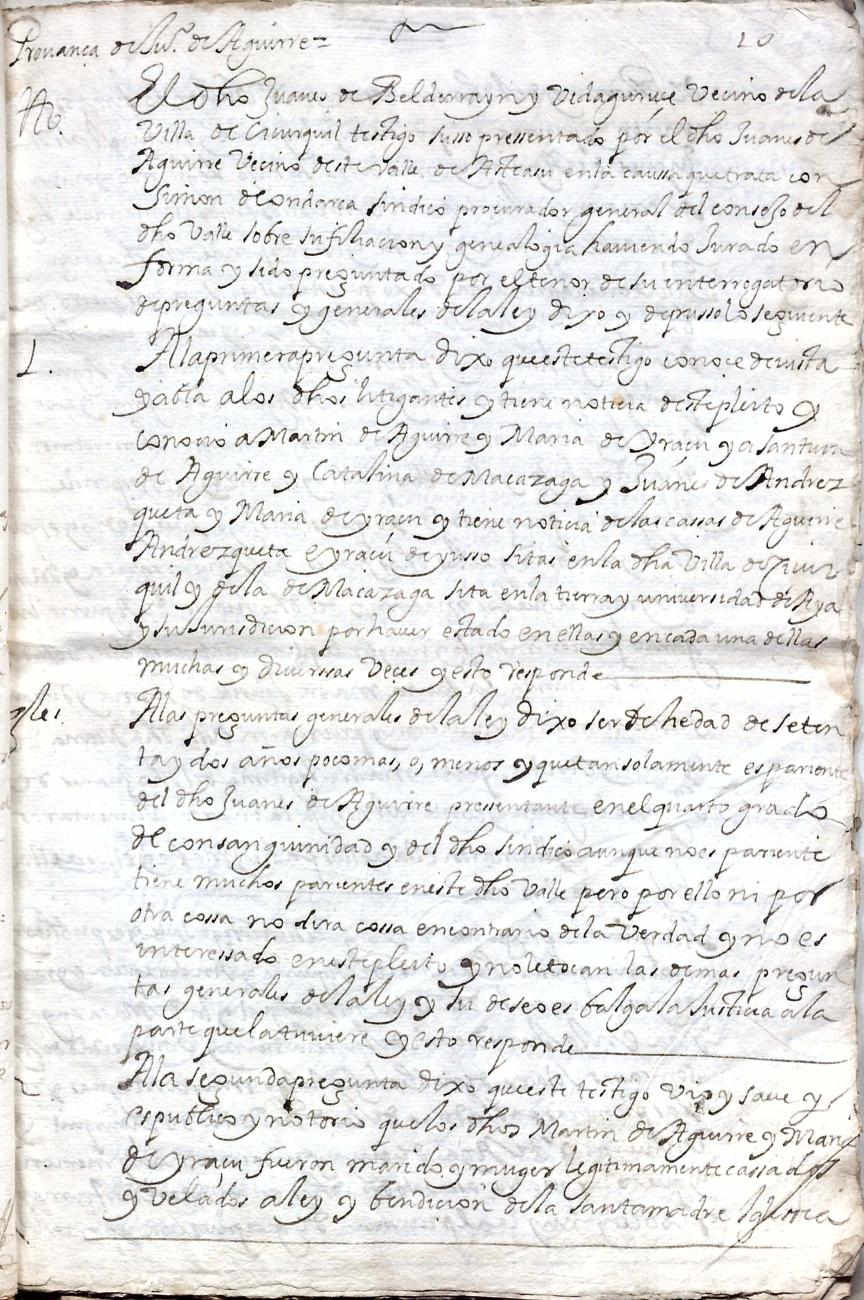 Provança de Ju.º de Aguirre
10
tº. El dho Juanes de Belderrayn y Vidaguruçe Vecino de la
Villa de Cicurquil testigo susso pressentado por el dho Juanes de
Aguirre Vecino deste Valle de Asteasu en la caussa que trata con
Simon de Ondarça sindico procurador general del consejo del
dho Valle sobre su filiacion y genealogia haviendo Jurado en
forma y sido preguntado por el tenor de su interrogatorio
de preguntas y generales de la ley dixo y depusso lo seguiente
1. A la primera pregunta dixo que este testigo conoce de vista
y abla a los dhos litigantes y tiene noticia deste pleito y
conocio a Martin de Aguirre y Maria de Yraçu y a Santuru
de Aguirre y Catalina de Macazaga y Juanes de Andrez
queta y Maria de yraçu y tiene noticia de las cassas de Aguirre
Andrezqueta e yraçu de yusso sitas en la dha Villa de Zicur
quil y de la de Macazaga sita en la tierra y universidad de Aya
y su Jurisdicion por haver estado en ellas y en cada una dellas
muchas y diverssas veces y esto responde
gles. A las preguntas generales de la ley dixo ser de hedad de seten
ta y dos años poco mas, o, menos y que tan solamente es pariente
del dho Juanes de Aguirre pressentante en el quarto grado
de consanguinidad y del dho sindico aunque no es pariente
tiene muchos parientes en este dho Valle pero por ello ni por
otra cossa no dira cossa en contrario de la Verdad y no es
interessado en este pleito y no le tocan las demas pregun
tas generales de la ley y su deseo es balga la Justicia a la
parte que la tuviere y esto responde
2 A la segunda pregunta dixo que este testigo Vio y save y
es publico y notorio que los dhos Martin de Aguirre y Maria
de Yraçu fueron marido y muger legitimamente cassados
y Velados a ley y bendicion de la santa madre Iglessia